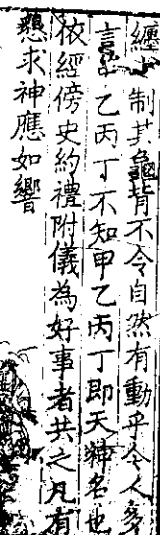 纏𠆢制其龜背不令自然有動乎今人多
言甲乙丙丁不知甲乙丙丁即天神名也
依經傍史約禮附儀為好事者共之凡有
懇求神應如響